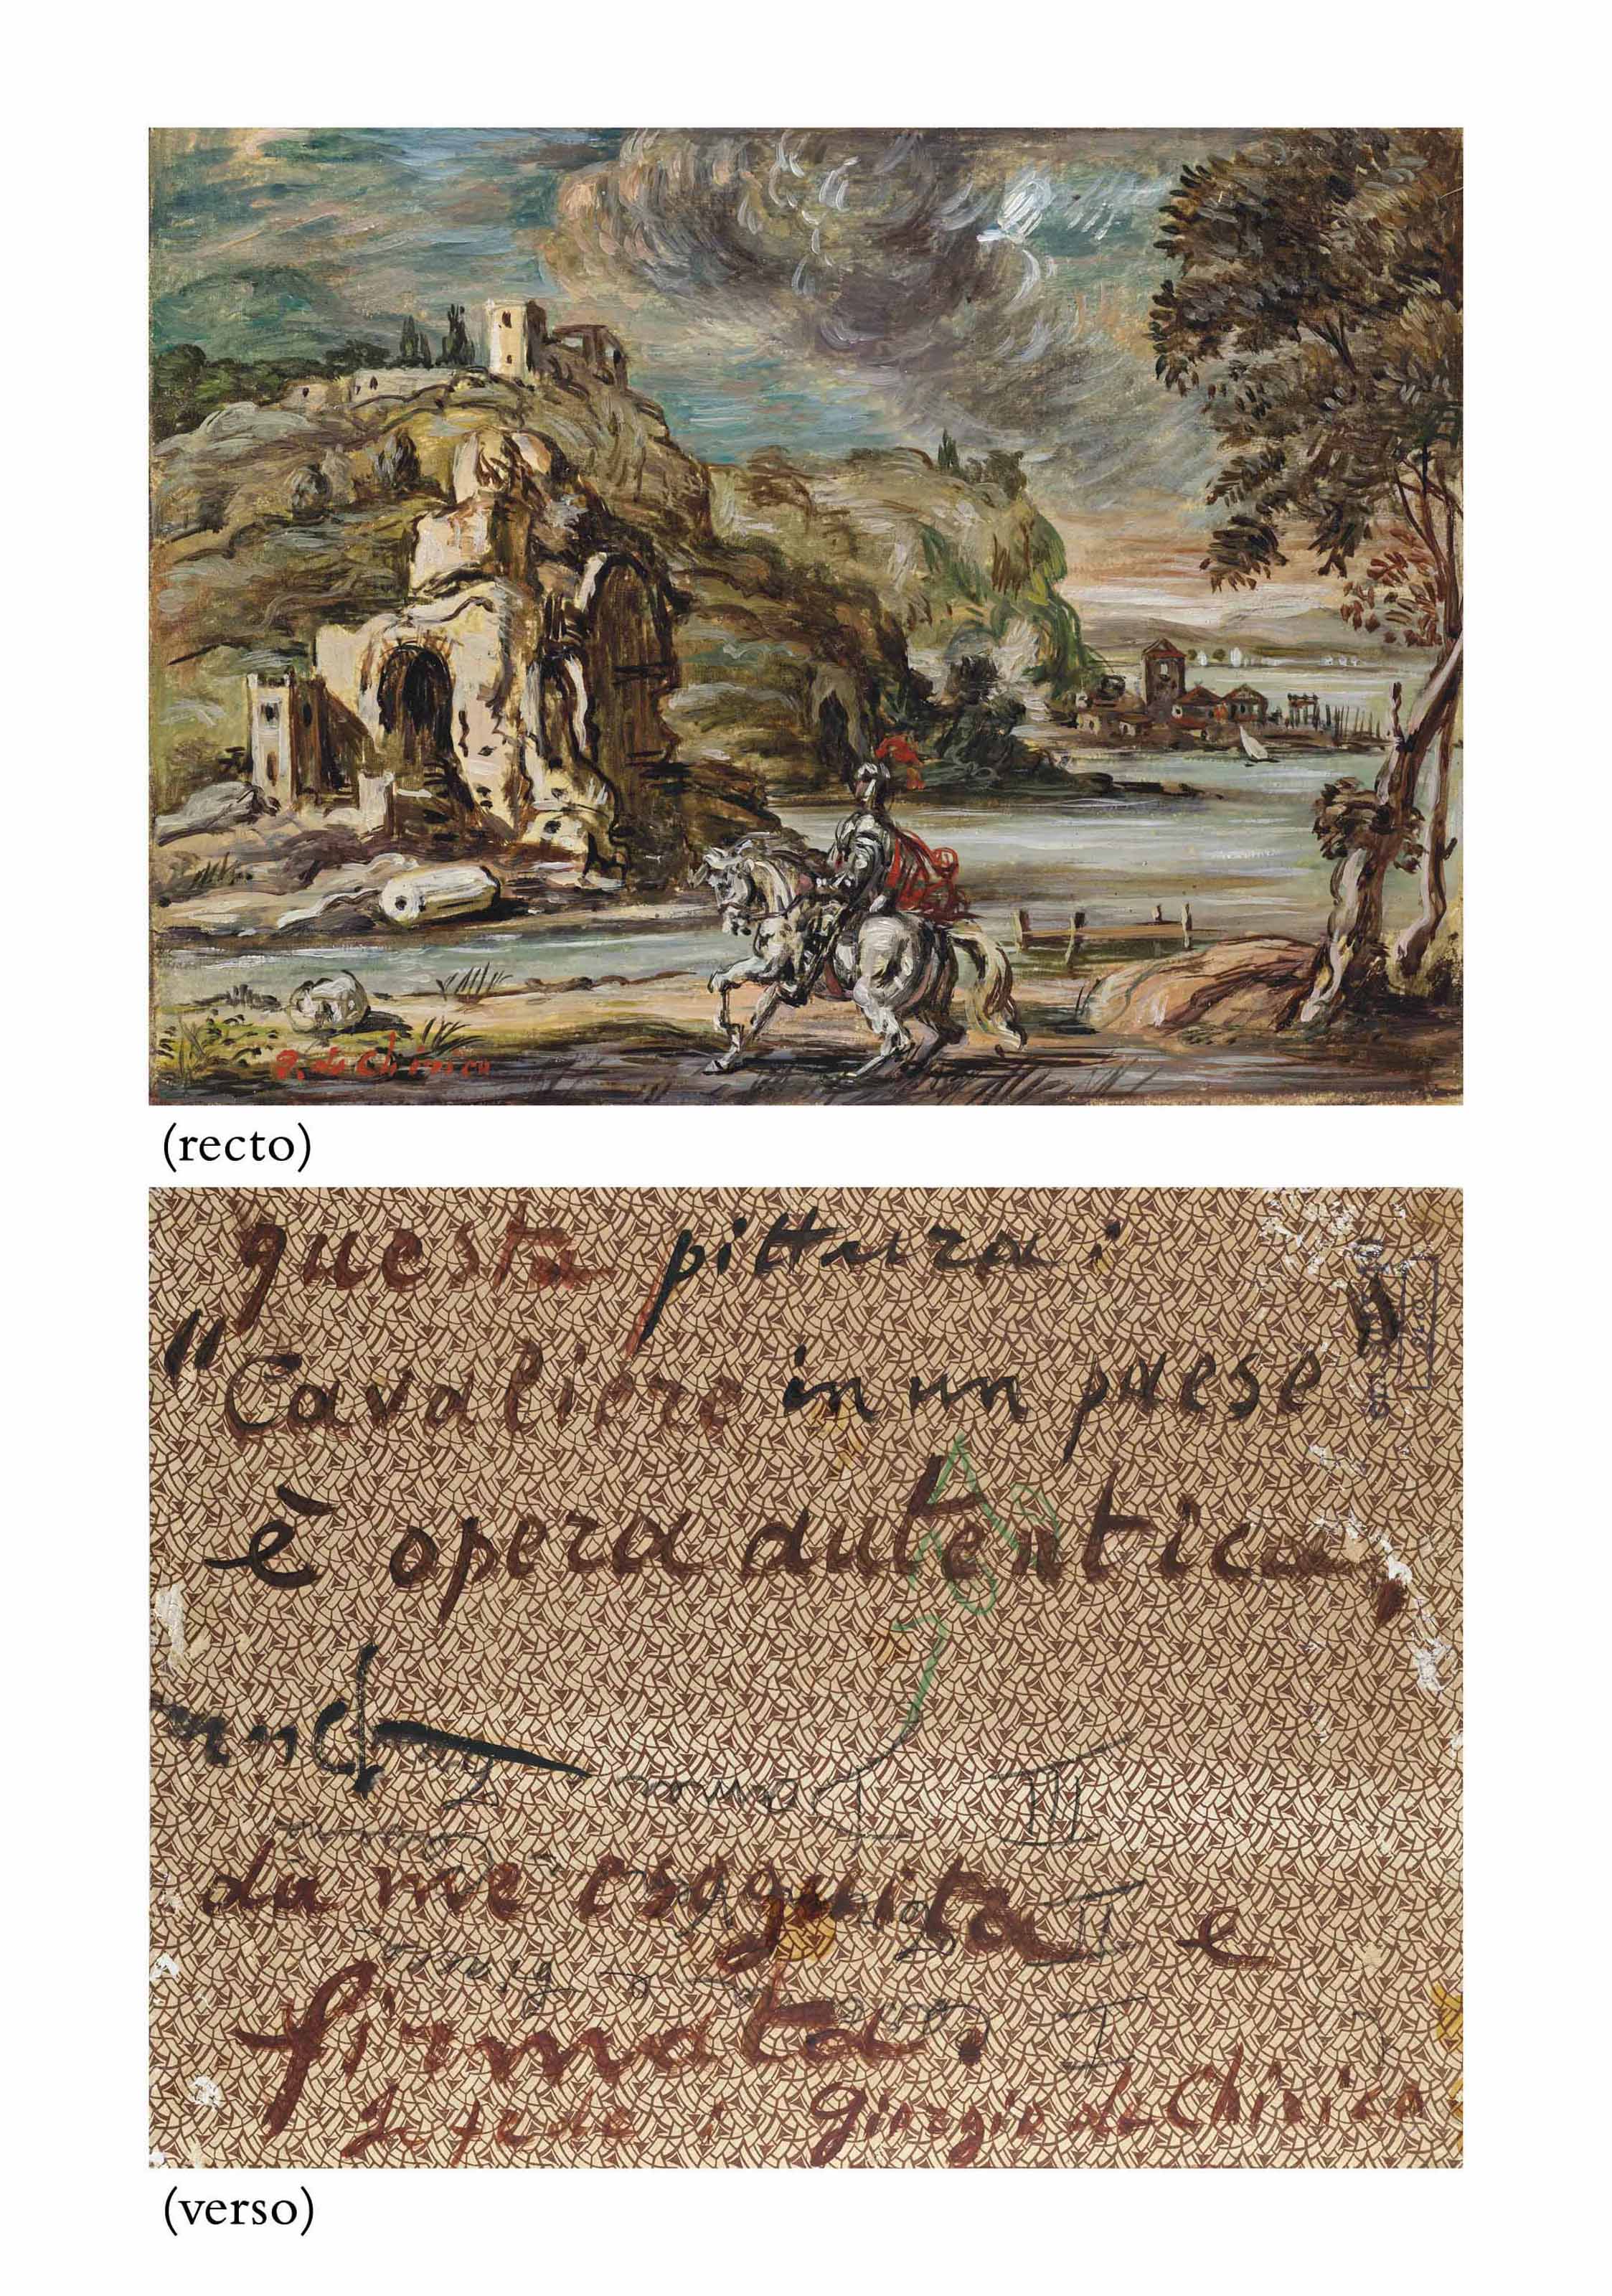 G. de Chirico
(recto)
questa pittura:
"Cavaliere in un paese"
è opera autentica,
da me eseguita e
firmata.
In fede: Giorgio de Chirico
III
II
I
(verso)